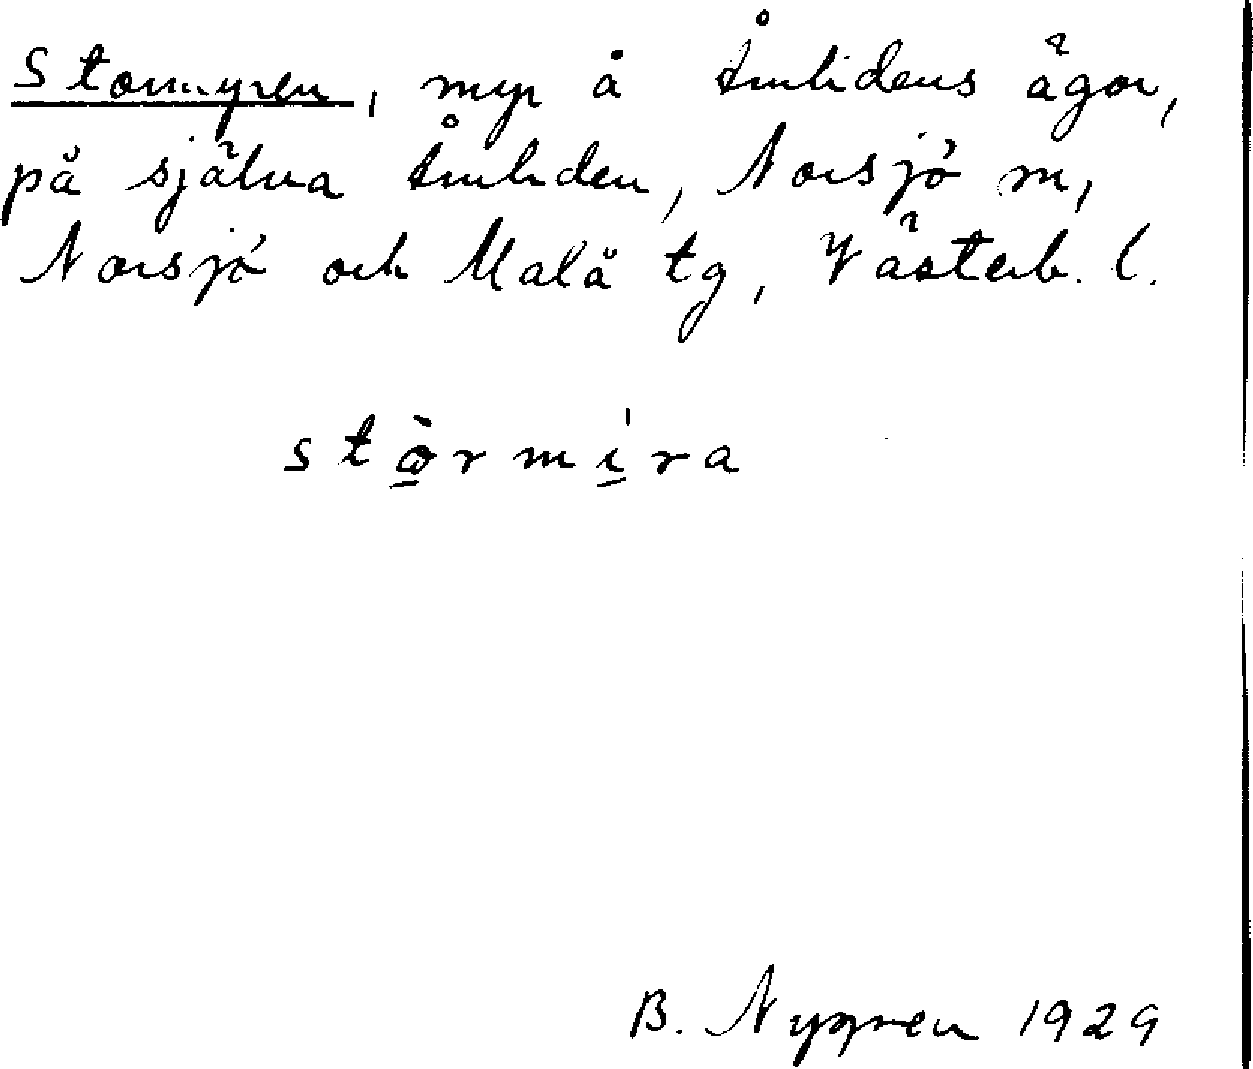 Stormyren, myr å Åmlidens ägor,
på själva Åmliden, Norsjö sn,
Norsjö och Malå tg, Västerb. l.
stòrmíra
B. Nygren 1929